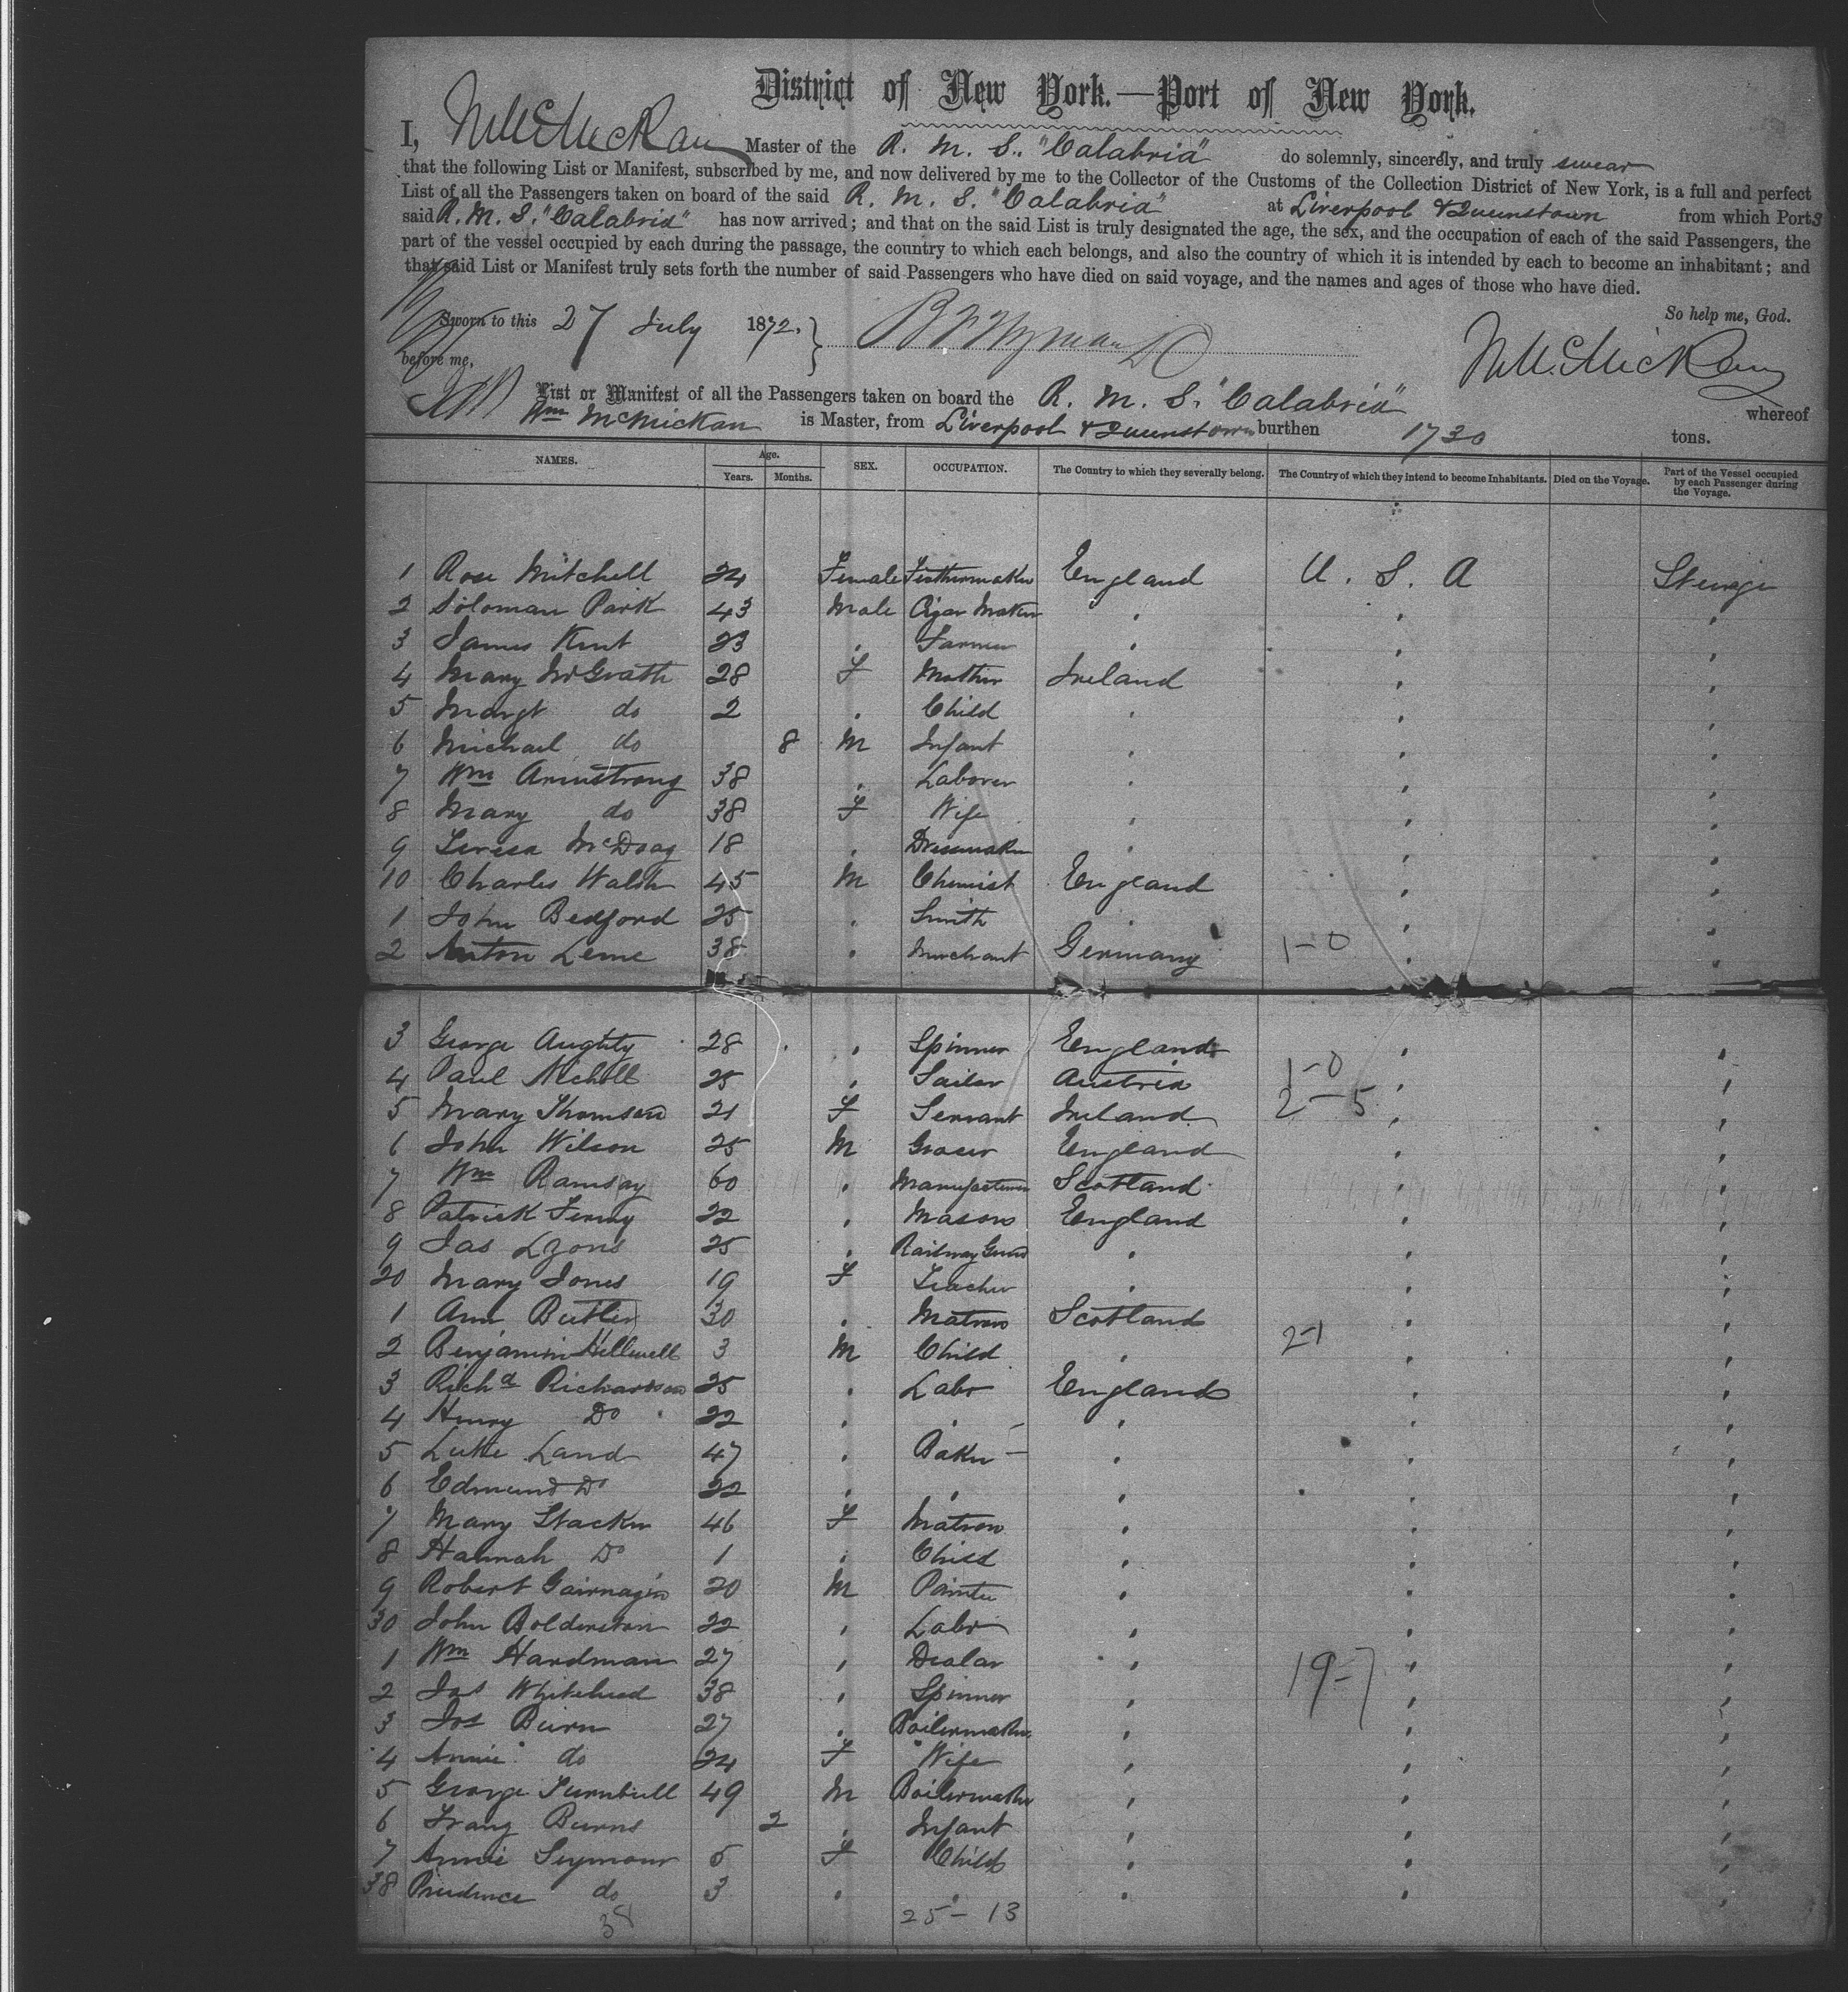 District of New York.—Port of New York.
I, Master of the R. M. S. "Calabria" do solemnly, sincerely, and truly swear
that the following List or Manifest, subscribed by me, and now delivered by me to the Collector of the Customs of the Collection District of New York, is a full and perfect
List of all the Passengers taken on board of the said R. M. S. "Calabria" at Liverpool & Queenstown from which Ports
said R. M. S. "Calabria" has now arrived; and that on the said List is truly designated the age, the sex, and the occupation of each of the said Passengers, the
part of the vessel occupied by each during the passage, the country to which each belongs, and also the country of which it is intended by each to become an inhabitant; and
that said List or Manifest truly sets forth the number of said Passengers who have died on said voyage, and the names and ages of those who have died.
So help me, God.
Sworn to this 27 July 1872.
before me,
List or Manifest of all the Passengers taken on board the R. M. S. "Calabria" whereof
Wm McMickan is Master, from Liverpool & Queenstown burthen 1730 tons.
NAMES. Age. Years. Months. SEX. OCCUPATION. The Country to which they severally belong. The Country of which they intend to become Inhabitants. Died on the Voyage. Part of the Vessel occupied by each Passenger during the Voyage.
1 Rose Mitchell 24 Female England U. S. A Steerage
2 Soloman Park 43 Male Cigar Maker "
3 James Kent 23 " Farmer "
4 Mary McGrath 28 F Mother Ireland
5 Margt do 2 " Child "
6 Michael do 8 M Infant "
7 Wm Armstrong 38 " Laborer "
8 Mary do 38 F Wife "
9 Teresa 18 " Dressmaker "
10 Charles Walsh 45 M Chemist England
1 John Bedford 25 " Smith "
2 Anton Leme 38 " Merchant Germany 1-0
3 George Aughty 28 " Spinner England
4 Paul Nicholl 25 " Sailor Austria 1-0
5 Mary Thomson 21 F Servant Ireland 2-5
6 John Wilson 25 M Grocer England
7 Wm Ramsay 60 " Manufacturer Scotland
8 Patrick 22 " Mason England
9 Jas Lyons 25 " Railway Guard "
20 Mary Jones 19 F Teacher "
1 Ann Butler 30 " Matron Scotland
2 Benjamin Helliwell 3 M Child " 2-1
3 Richd Richardson 25 " Labr England
4 Henry Do 22 " " "
5 Luke Land 47 " Baker "
6 Edmund Do 22 " " "
7 Mary 46 F Matron "
8 Hannah Do 1 " Child "
9 Robert 20 M Painter "
30 John Bolderston 22 " Labr "
1 Wm Hardman 27 " Dealer " 19-7
2 Jas Whitehead 38 " Spinner "
3 Jos Burn 27 " Boilermaker "
4 Annie do 24 F Wife "
5 George Turnbull 49 M Boilermaker "
6 Burns 2 " Infant "
7 Annie Seymour 5 F Child "
38 Prudence do 3 " " "
38 25-13